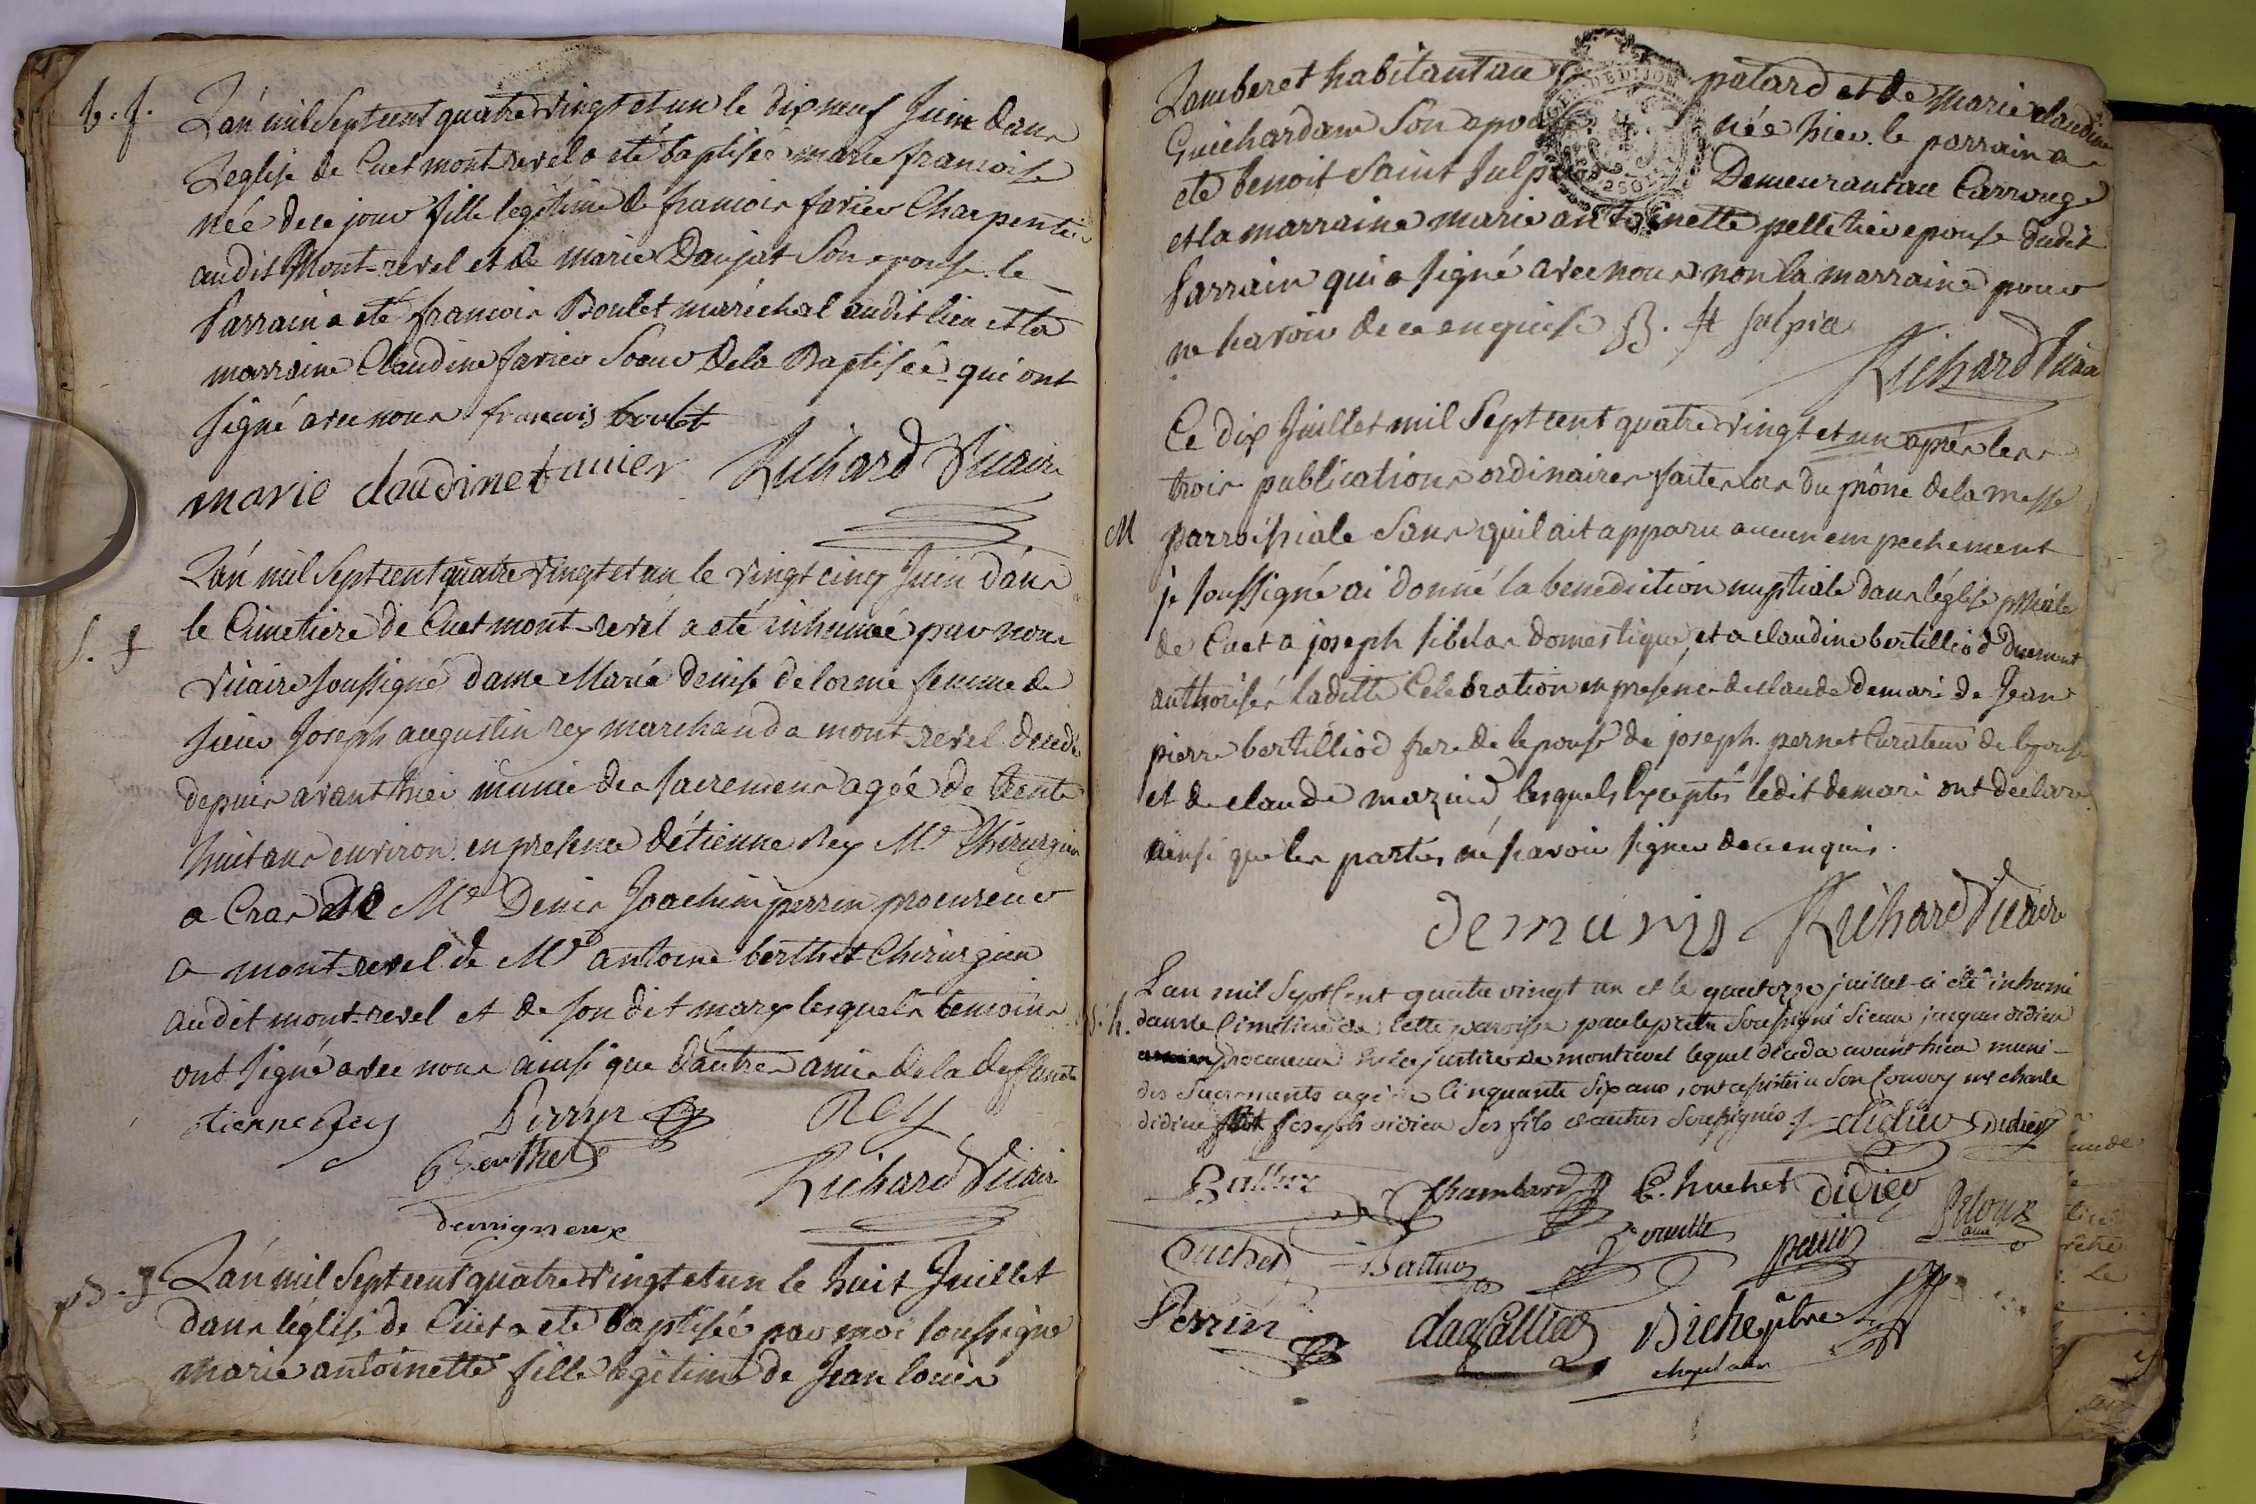 b. f.
L'an mil Sept cent quatre vingt et un le dix neuf Juin dans
L'eglise de Cuet mont revel a eté baptisée marie francoise
née de ce jour fille legitime de francois favier Charpentier
audit Mont-revel et de marie Daujat Son epouse. le
Parrain a eté francois Boulet maréchal audit lieu et la
marraine Claudine favier Soeur de la Baptisée qui ont
signé avec nous francois boulet
marie claudine favier Richard Vicaire
S. f
L'an mil Sept cent quatre vingt et un le vingt cinq Juin dans
le Cimetiere de Cuet mont-revel a eté inhumée par nous
Vicaire soussigné dame Marie denise delorme femme de
sieur Joseph augustin rey marchand a mont-revel decedée
depuis avant hier munie des sacremens agée de trente
huit ans environ. en presence d'étienne Rey Me Chirurgien
a Cras de Me Denis Joachim perrin procureur
a mont-revel de Me antoine berthet Chirurgien
audit mont-revel et de son dit mary lesquels temoins
ont signé avec nous ainsi que d'autres amis de la deffunte
etienne Rey Perrin Rey
Berthet Richard Vicaire
demigneux
B. f
L'an mil Sept cent quatre vingt et un le huit Juillet
dans l'église de Cuet a eté baptisée par moi soussigné
marie antoinette fille legitime de Jean louis
Lamberet habitant au patard et de Marie claudine
Guichardam Son epouse née hier. le parrain a
eté benoit Saint Sulpis Demeurant au Carrouge
et la marraine marie antoinette pelletier epouse dudit
Parrain qui a signé avec nous non la marraine pour
ne scavoir de ce enquise B. St sulpia
Richard Vicaire
Ce dix Juillet mil Sept cent quatre vingt et un après les
trois publications ordinaires faites lors du prône de la messe
M parroissiale Sans quil ait apparu aucun empechement
je soussigné ai donné la benediction nuptiale dans l'église pssiale
de Cuet a joseph sibelas domestique, et a claudine bertilliod duement
authorisés laditte Celebration en presence de claude demari de Jean
pierre bertilliod frere de lepouse de joseph pernet Curateur de lepouse
et de claude mazuid lesquels Exceptés ledit demari ont declaré
ainsi que les parties né scavoir signer de ce enquis.
demaris Richard Vicaire
S. h.
L'an mil Sept Cent quatre vingt un et le quatorze juillet a été inhumé
dans le Cimetiere de Cette paroisse par le pretre Soussigné Sieur jacques didier
procureur ès les justices de montrevel lequel déceda avant hier muni
des Sacrements agé de Cinquante Six ans, ont assisté a Son Convoy me charle
didier joseph didier Ses fils et autres Soussignés didier Didier
Balluz Chambard C. huchet didier
Cuchet Balluz perrin
Perrin dagallier Biche ptre
chapelain